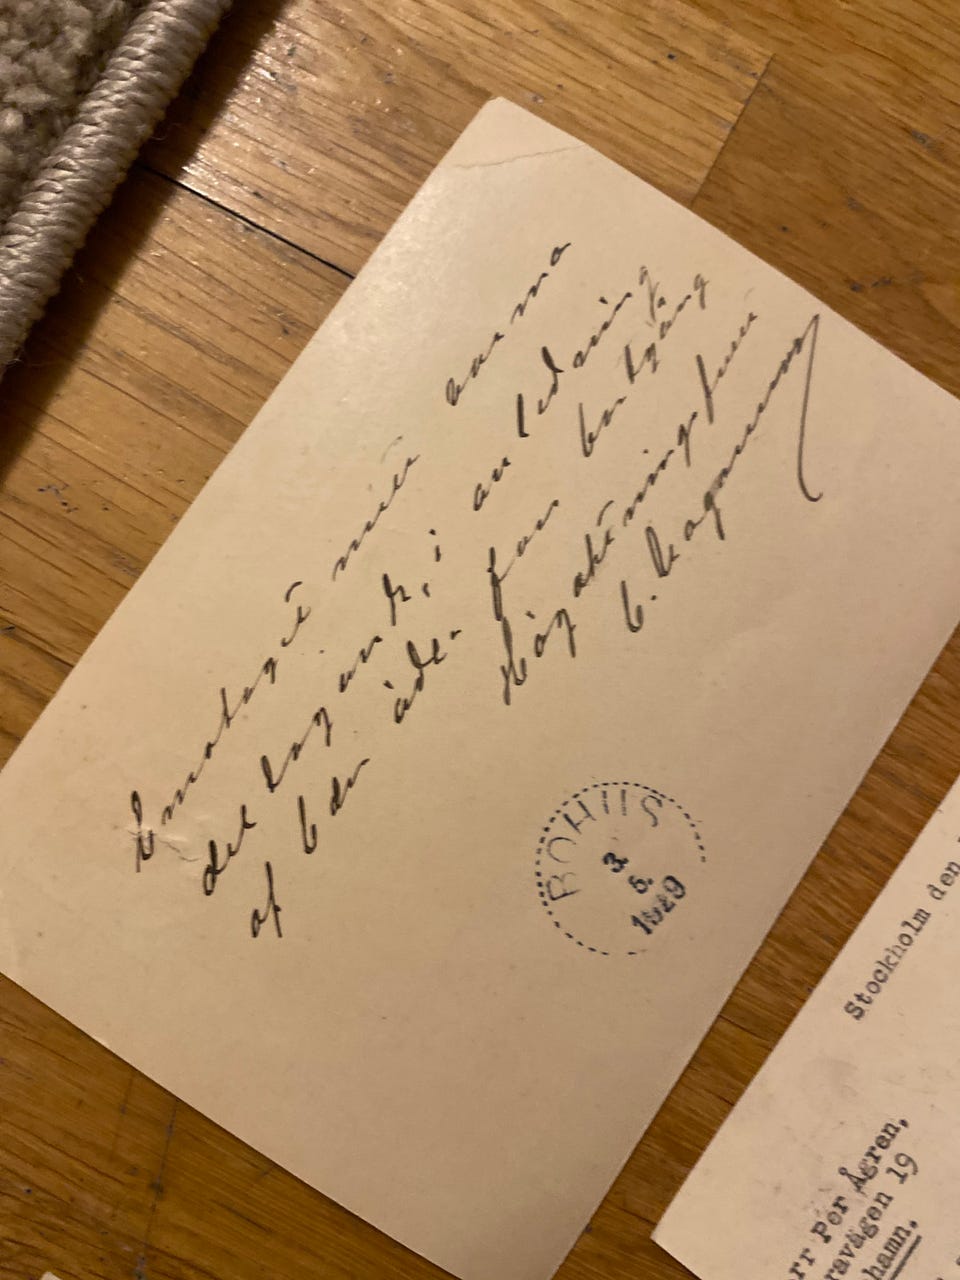 Emotagit mitt varma
deltagande, i anledning
af Eder åde- fars bortgång
Högaktningsfull
E. Magnusson
BOHUS
3.
5.
1929
Stockholm den
rr Per Ågren,
ravägen 19
hamn.